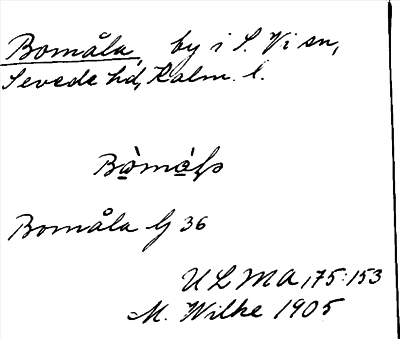 Bomåla, by i S. Vi sn,
Sevede hd, Kalm. l.
Bomåla G 36
ULMA, 175:153
M. Wilke 1905